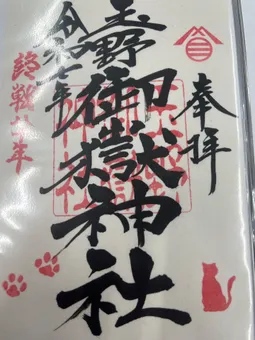 奉拝
玉野
御嶽神社
令和七年
終戦八十年